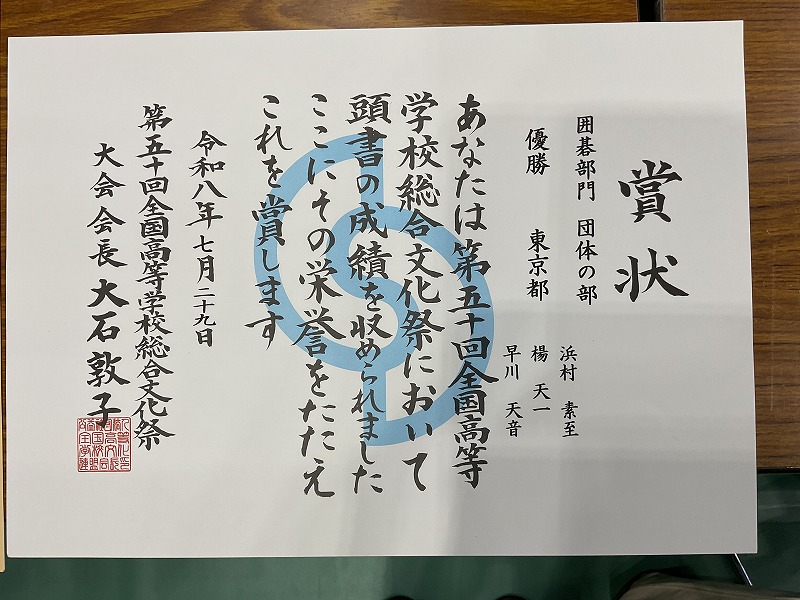 賞状
囲碁部門 団体の部
優勝 東京都
浜村 素至
楊 天一
早川 天音
あなたは第五十回全国高等
学校総合文化祭において
頭書の成績を収められました
ここにその栄誉をたたえ
これを賞します
令和八年七月二十九日
第五十回全国高等学校総合文化祭
大会会長 大石敦子